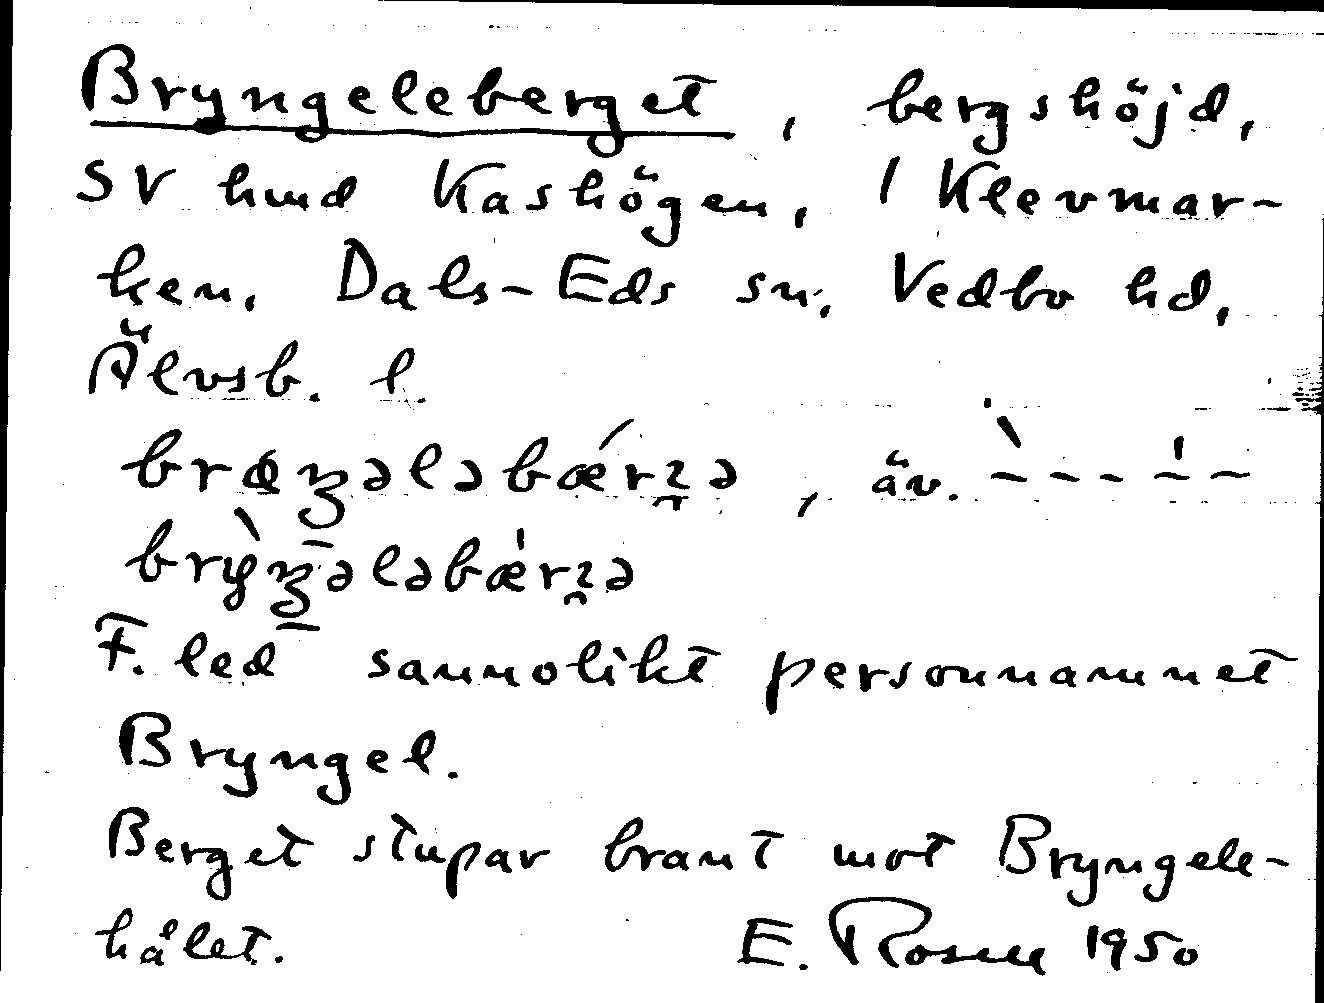 Bryngeleberget, bergshöjd,
SV hmd Kashögen, 1 Klevmar-
ken, Dals-Eds sn, Vedbo hd,
Älvsb. l.
, äv.
F. led sannolikt personnamnet
Bryngel.
Berget stupar brant mot Bryngele-
hålet. E. Rosell 1950